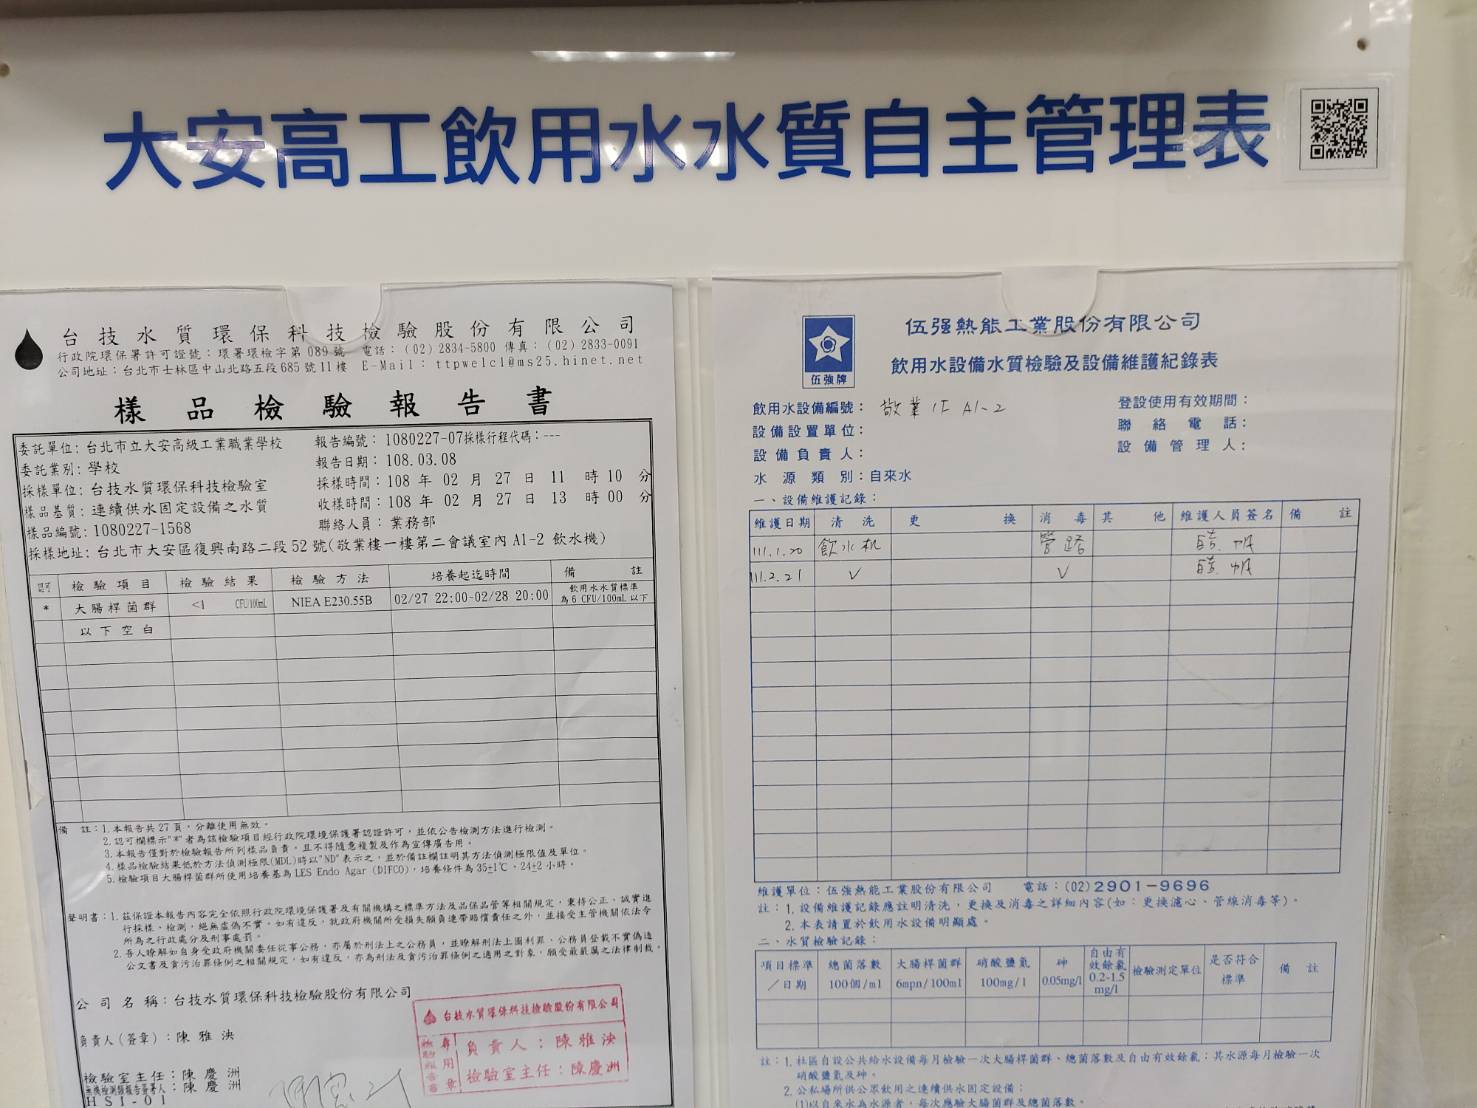 大安高工飲用水水質自主管理表
台技水質環保科技檢驗股份有限公司
行政院環保署許可證號：環署環檢字第 089 號 電話：(02) 2834-5800 傳真：(02) 2833-0091
公司地址：台北市士林區中山北路五段 685 號 11 樓 E-Mail： ttpwelcl@ms25.hinet.net
樣品檢驗報告書
委託單位: 台北市立大安高級工業職業學校
委託業別: 學校
採樣單位: 台技水質環保科技檢驗室
樣品基質: 連續供水固定設備之水質
樣品編號: 1080227-1568
採樣地址: 台北市大安區復興南路二段 52 號(敬業樓一樓第二會議室內 A1-2 飲水機)
報告編號：1080227-07 採樣行程代碼：---
報告日期：108.03.08
採樣時間：108 年 02 月 27 日 11 時 10 分
收樣時間：108 年 02 月 27 日 13 時 00 分
聯絡人員：業務部
認可 檢驗項目 檢驗結果 檢驗方法 培養起迄時間 備註
* 大腸桿菌群 <1 CFU/100mL NIEA E230.55B 02/27 22:00-02/28 20:00 飲用水水質標準為 6 CFU/100mL 以下
以下空白
備 註：1.本報告共 27 頁，分離使用無效。
2.認可欄標示"*"者為該檢驗項目經行政院環境保護署認證許可，並依公告檢測方法進行檢測。
3.本報告僅對於檢驗報告所列樣品負責，且不得隨意複製及作為宣傳廣告用。
4.樣品檢驗結果低於方法偵測極限(MDL)時以"ND"表示之，並於備註欄註明其方法偵測極限值及單位。
5.檢驗項目大腸桿菌群所使用培養基為 LES Endo Agar (DIFCO)，培養條件為 35±1℃、24±2 小時。
聲明書：1.茲保證本報告內容完全依照行政院環境保護署及有關機構之標準方法及品保品管等相關規定，秉持公正、誠實進
行採樣、檢測，絕無虛偽不實，如有違反，就政府機關所受損失願負連帶賠償責任之外，並接受主管機關依法令
所為之行政處分及刑事處罰。
2.吾人瞭解如自身受政府機關委任從事公務，亦屬於刑法上之公務員，並瞭解刑法上圖利罪、公務員登載不實偽造
公文書及貪污治罪條例之相關規定，如有違反，亦為刑法及貪污治罪條例之適用之對象，願受最嚴厲之法律制裁。
公司名稱：台技水質環保科技檢驗股份有限公司
負責人(簽章)：陳雅泱
檢驗室主任：陳慶洲
無機檢測類報告簽署人：陳慶洲
HSI-01
台技水質環保科技檢驗股份有限公司
檢驗報告專用章
負責人：陳雅泱
檢驗室主任：陳慶洲
伍強牌
伍强熱能工業股份有限公司
飲用水設備水質檢驗及設備維護紀錄表
飲用水設備編號： 敬業1F A1-2
設備設置單位：
設備負責人：
水源類別：自來水
登設使用有效期間：
聯絡電話：
設備管理人：
一、設備維護記錄：
維護日期 清洗 更換 消毒 其他 維護人員簽名 備註
111.1.20 飲水机 管路
111.2.21 ∨ ∨
維護單位：伍強熱能工業股份有限公司 電話：(02)2901-9696
註：1.設備維護記錄應註明清洗，更換及消毒之詳細內容(如：更換濾心、管線消毒等)。
2.本表請置於飲用水設備明顯處。
二、水質檢驗記錄：
項目標準／日期 總菌落數 100個/ml 大腸桿菌群 6mpn/100ml 硝酸鹽氮 100mg/l 砷 0.05mg/l 自由有效餘氯 0.2-1.5 mg/l 檢驗測定單位 是否符合標準 備註
註：1.社區自設公共給水設備每月檢驗一次大腸桿菌群、總菌落數及自由有效餘氯；其水源每月檢驗一次
硝酸鹽氮及砷。
2.公私場所供公眾飲用之連續供水固定設備：
(1)以自來水為水源者，每次應驗大腸菌群及總菌落數。